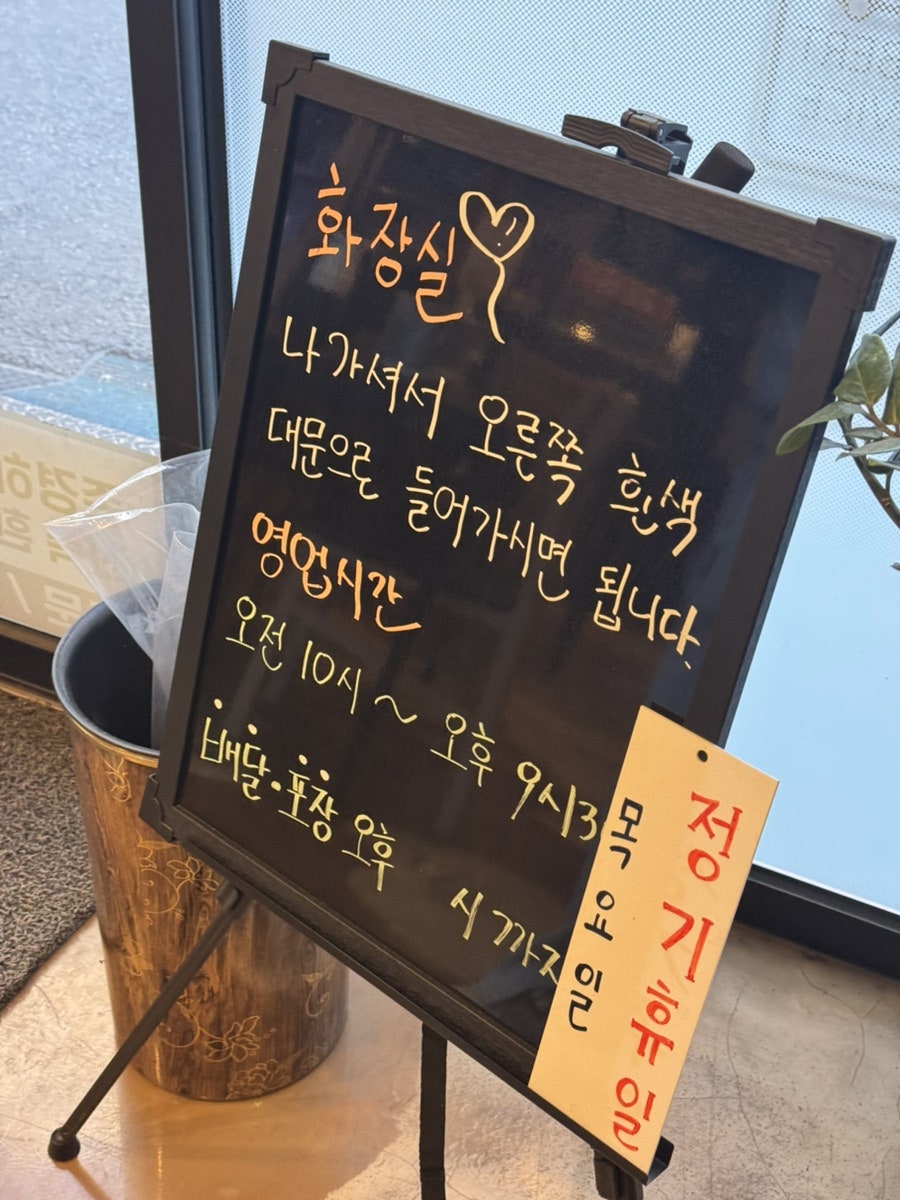 화장실
나가셔서 오른쪽 흰색
대문으로 들어가시면 됩니다.
영업시간
오전 10시 ~ 오후 9시3
배달·포장 오후 시 까지
정기휴일
목요일